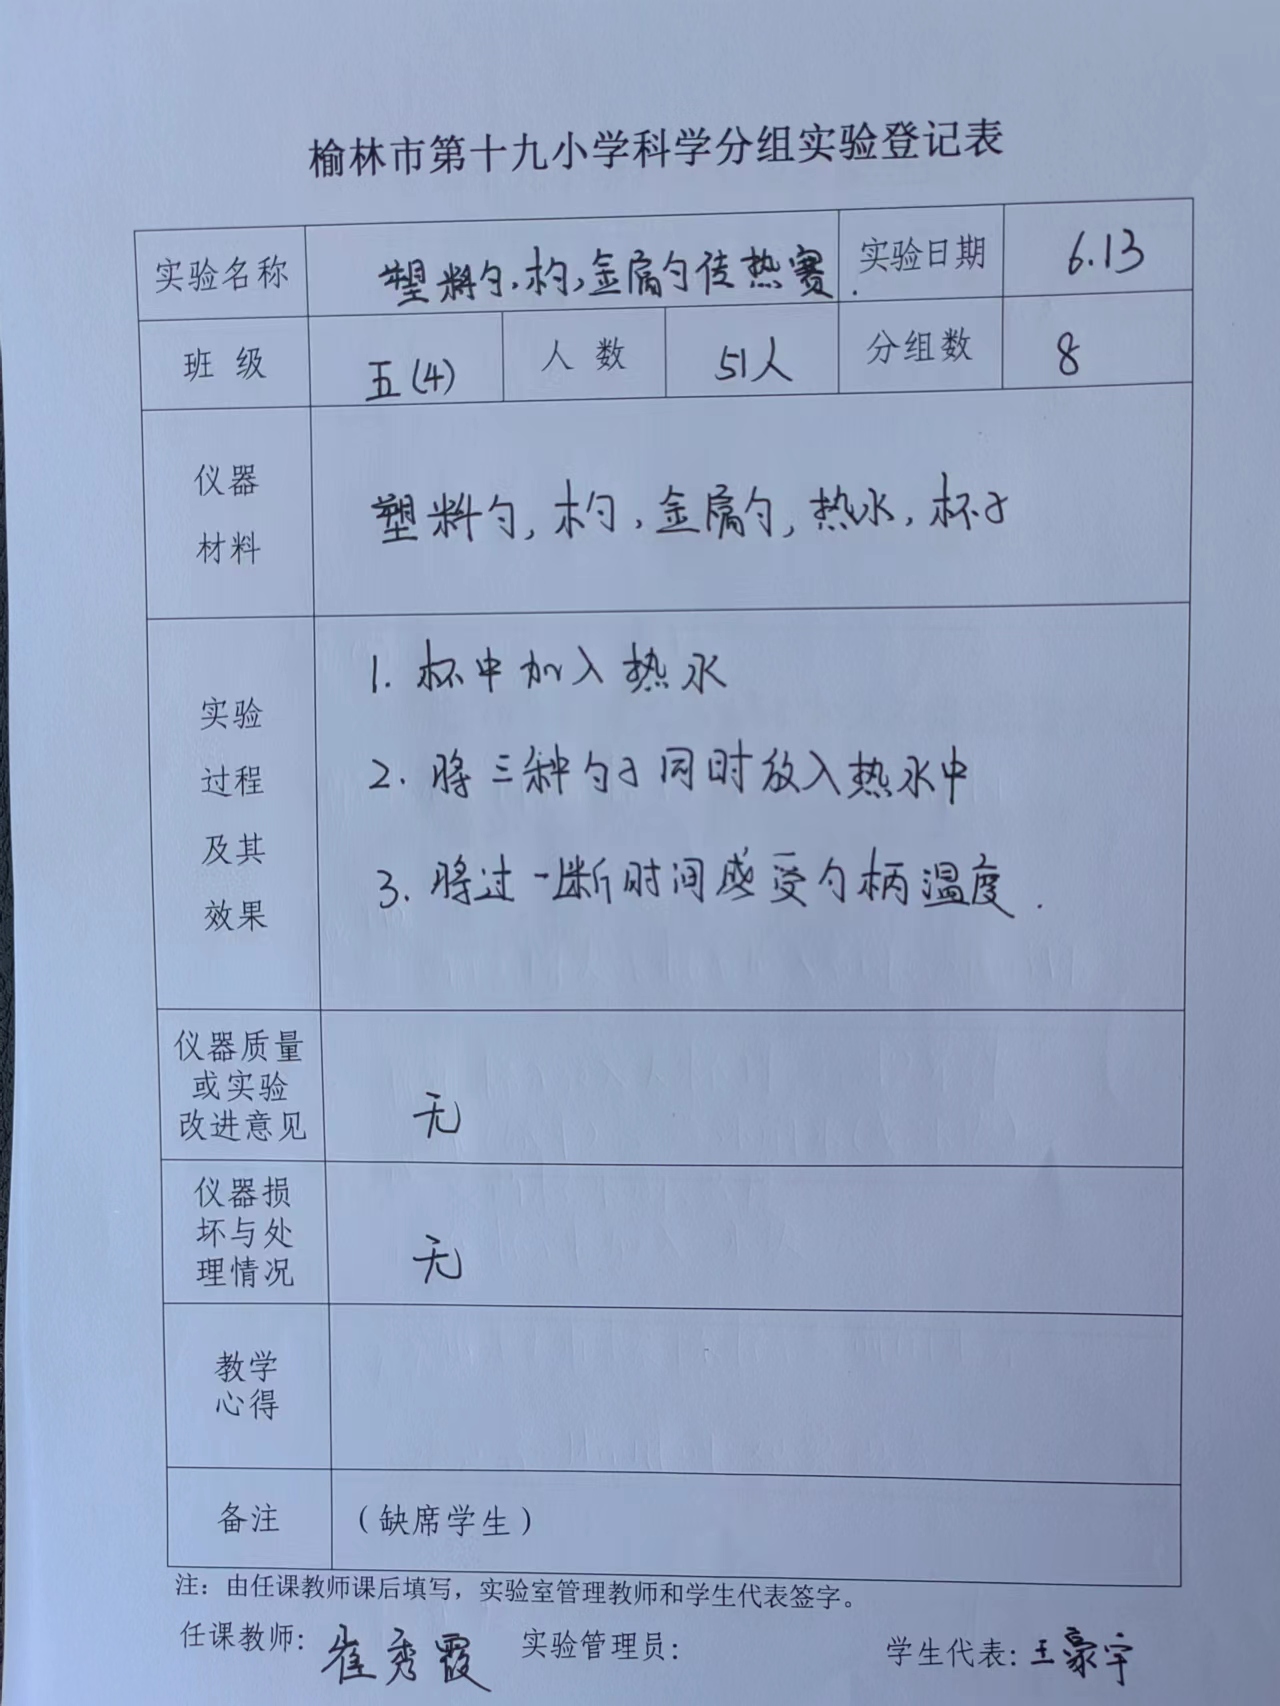 榆林市第十九小学科学分组实验登记表
实验名称 塑料勺,木勺,金属勺传热赛. 实验日期 6.13
班级 五(4) 人数 51人 分组数 8
仪器
材料
塑料勺,木勺,金属勺,热水,杯子
实验
过程
及其
效果
1. 杯中加入热水
2. 将三种勺子同时放入热水中
3. 将过一断时间感受勺柄温度.
仪器质量
或实验
改进意见
无
仪器损
坏与处
理情况
无
教学
心得
备注 (缺席学生)
注:由任课教师课后填写,实验室管理教师和学生代表签字。
任课教师: 崔秀霞 实验管理员: 学生代表: 王豪宇